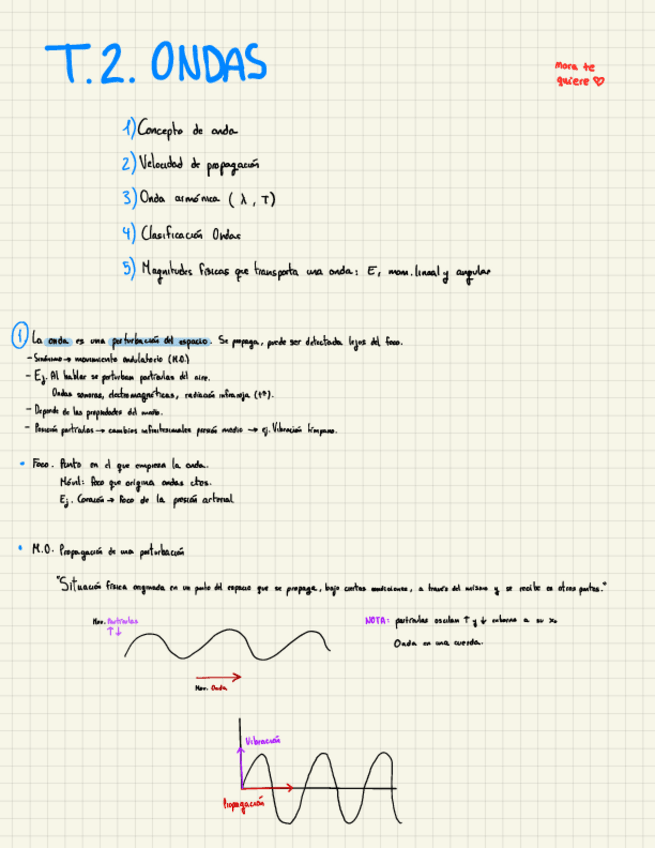 T.2. ONDAS
Mora te
quiere ♡
1) Concepto de onda
2) Velocidad de propagación
3) Onda armónica ( λ , T)
4) Clasificación Ondas
5) Magnitudes físicas que transporta una onda: E, mom. lineal y angular
1 La onda es una perturbación del espacio. Se propaga, puede ser detectada lejos del foco.
- Sinónimo → movimiento ondulatorio (M.O.)
- Ej. Al hablar se perturban partículas del aire.
Ondas sonoras, electromagnéticas, radiación infrarroja (tª).
- Depende de las propiedades del medio.
- Posición partículas → cambios infinitesimales presión medio → ej. Vibración tímpano.
• Foco. Punto en el que empieza la onda.
Móvil: foco que origina ondas ctes.
Ej. Corazón → Foco de la presión arterial
• M.O. Propagación de una perturbación
"Situación física originada en un punto del espacio que se propaga, bajo ciertas condiciones, a través del mismo y se recibe en otros puntos."
Mov. Partículas
↑↓
NOTA: partículas oscilan ↑ y ↓ entorno a su x₀
Onda en una cuerda.
Mov. Onda
Vibración
Propagación